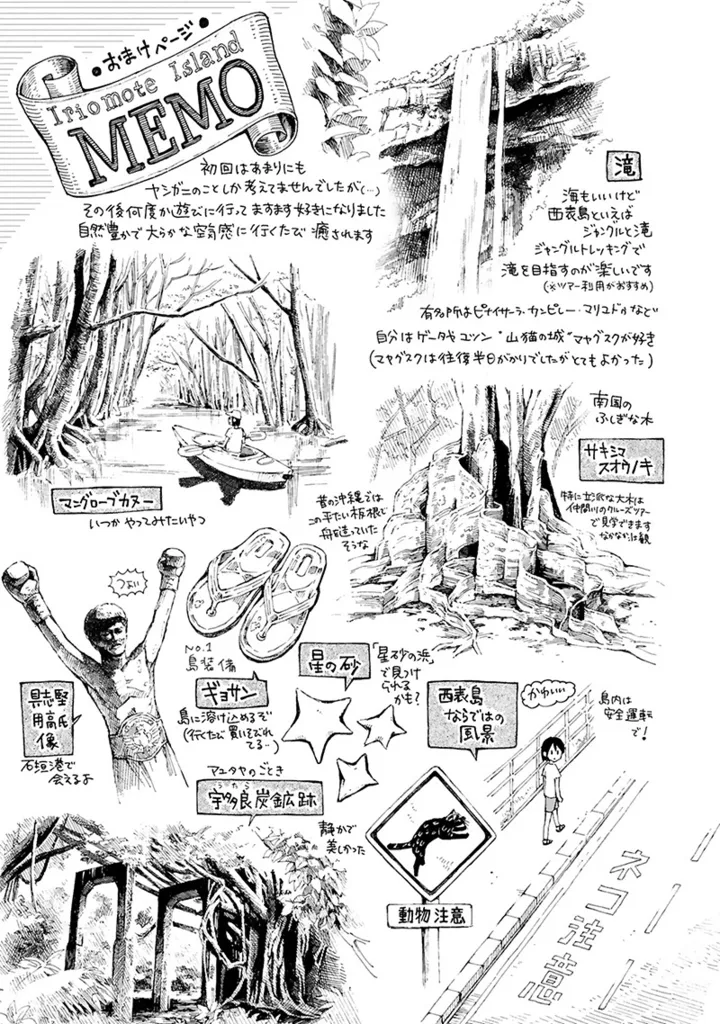 おまけページ
Iriomote Island
MEMO
初回はあまりにも
ヤシガニのことしか考えてませんでしたが(…)
その後何度か遊びに行ってますます好きになりました
自然豊かで大らかな空気感に行くたび癒されます
滝
海もいいけど
西表島といえば
ジャングルと滝
ジャングルトレッキングで
滝を目指すのが楽しいです
(※ツアー利用がおすすめ)
有名所はピナイサーラ・カンピレー・マリユドゥなど
自分はゲータやユツン "山猫の城"マヤグスクが好き
(マヤグスクは往復半日がかりでしたがとてもよかった)
マングローブカヌー
いつか やってみたいやつ
南国の
ふしぎな木
サキシマ
スオウノキ
昔の沖縄では
この平たい板根で
舟を造っていた
そうな
特に立派な大木は
仲間川のクルーズツアー
で見学できます
なかなか壮観
つよい
具志堅
用高氏
像
石垣港で
会えるよ
No.1
島装備
ギョサン
島に溶け込めるぞ
(行くたび買いそびれ
てる…)
星の砂
「星砂の浜」
で見つけ
られる
かも?
西表島
ならではの
風景
かわいい
島内は
安全運転
で!
マユタヤのごとき
うたら
宇多良炭鉱跡
静かで
美しかった
動物注意
ネコ注意